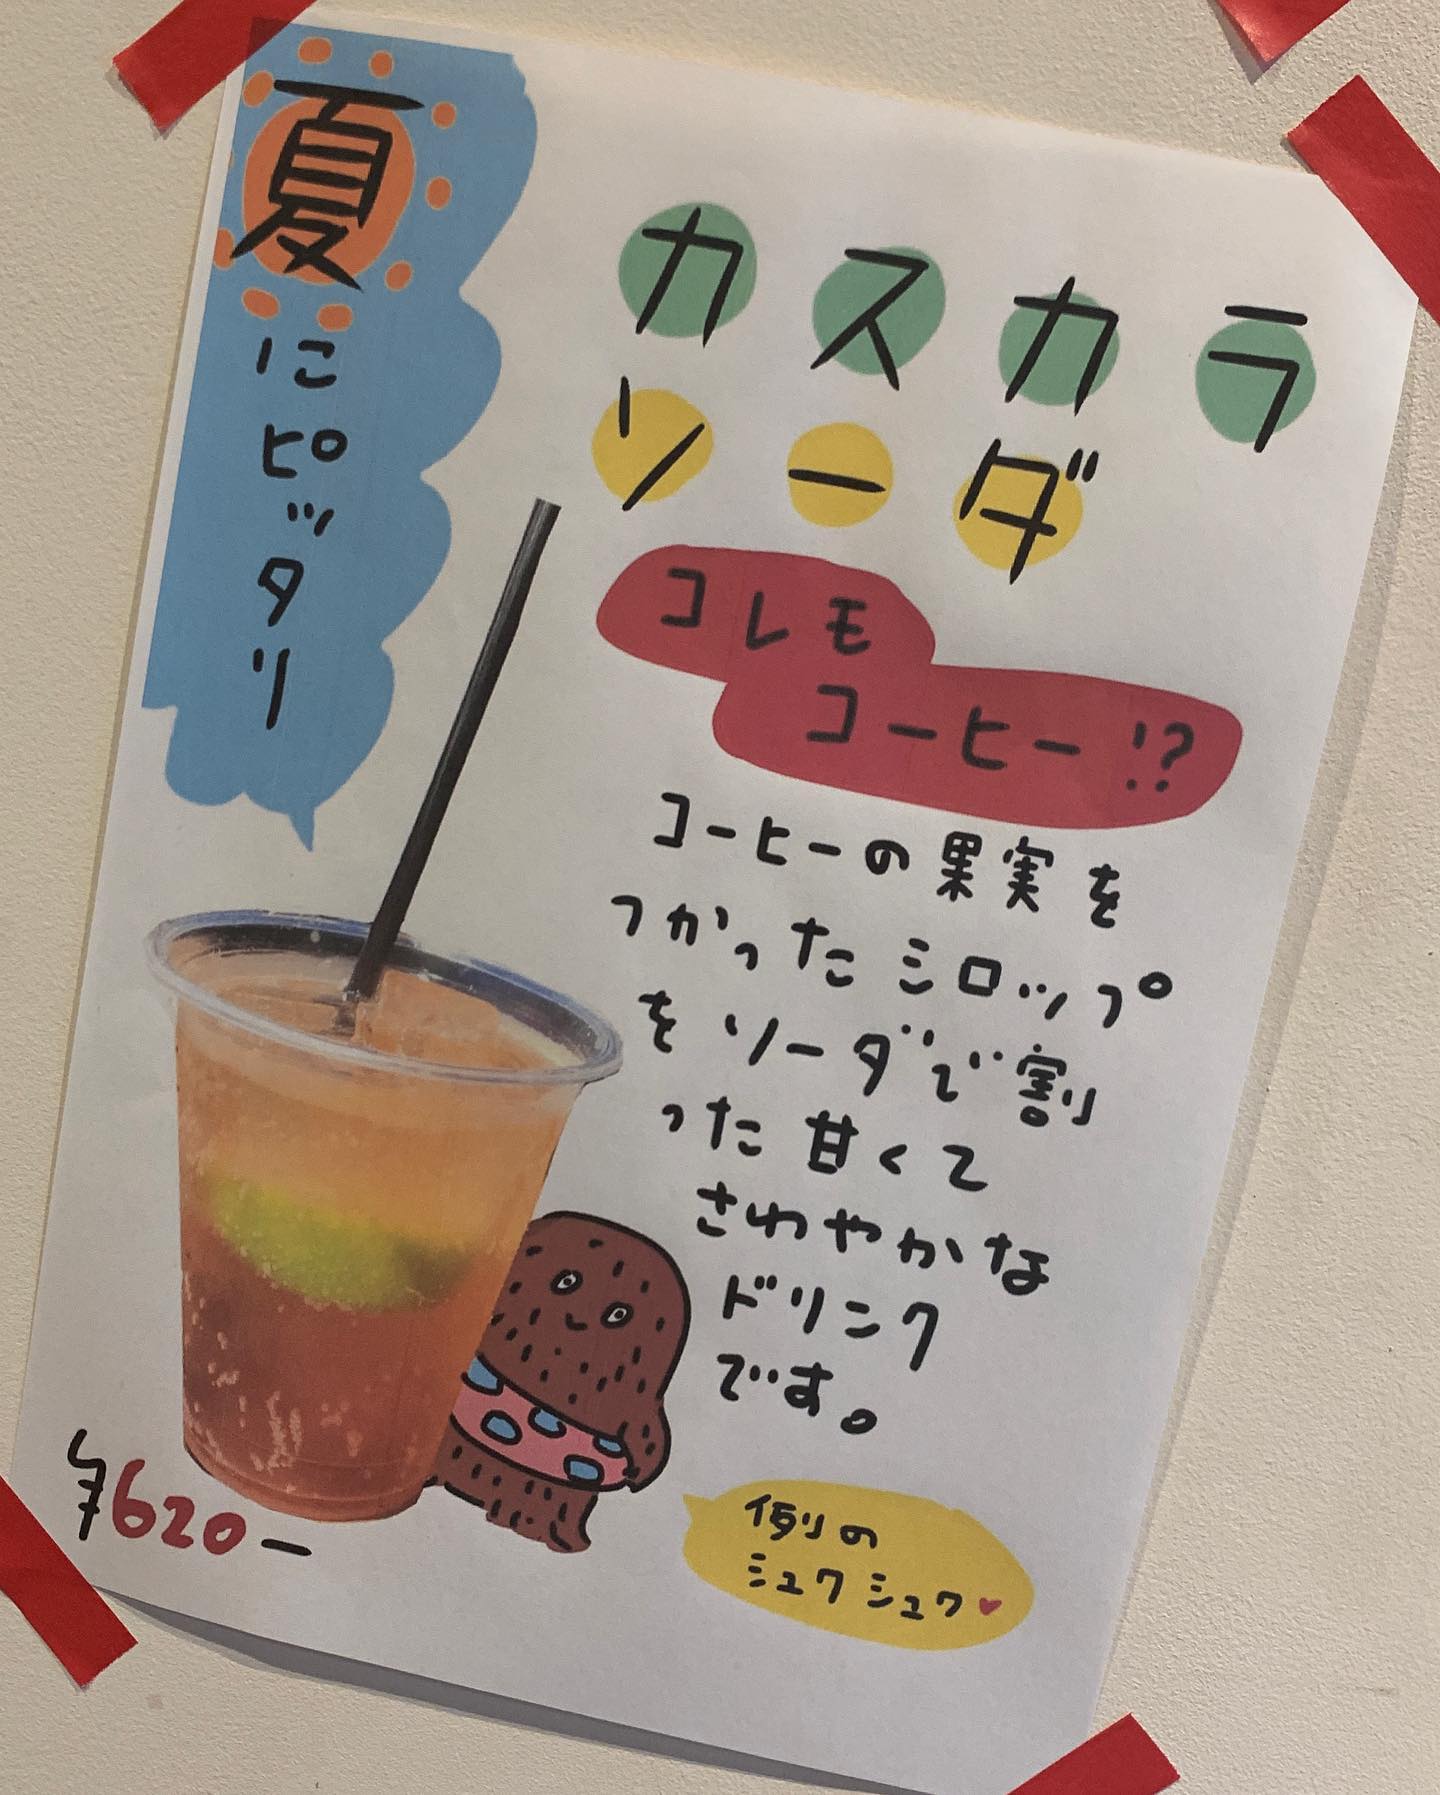 夏にピッタリ
カスカラ
ソーダ
コレモ
コーヒー!?
コーヒーの果実を
つかったシロップ
をソーダで割
った甘くて
さわやかな
ドリンク
です。
¥620ー
例の
シュワシュワ♥